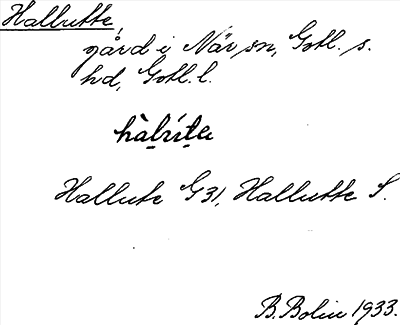 Hallutte,
gård i När sn, Gotl. s.
hd, Gotl. l.
Hallute G31, Hallutte S.
B. Bolin 1933.